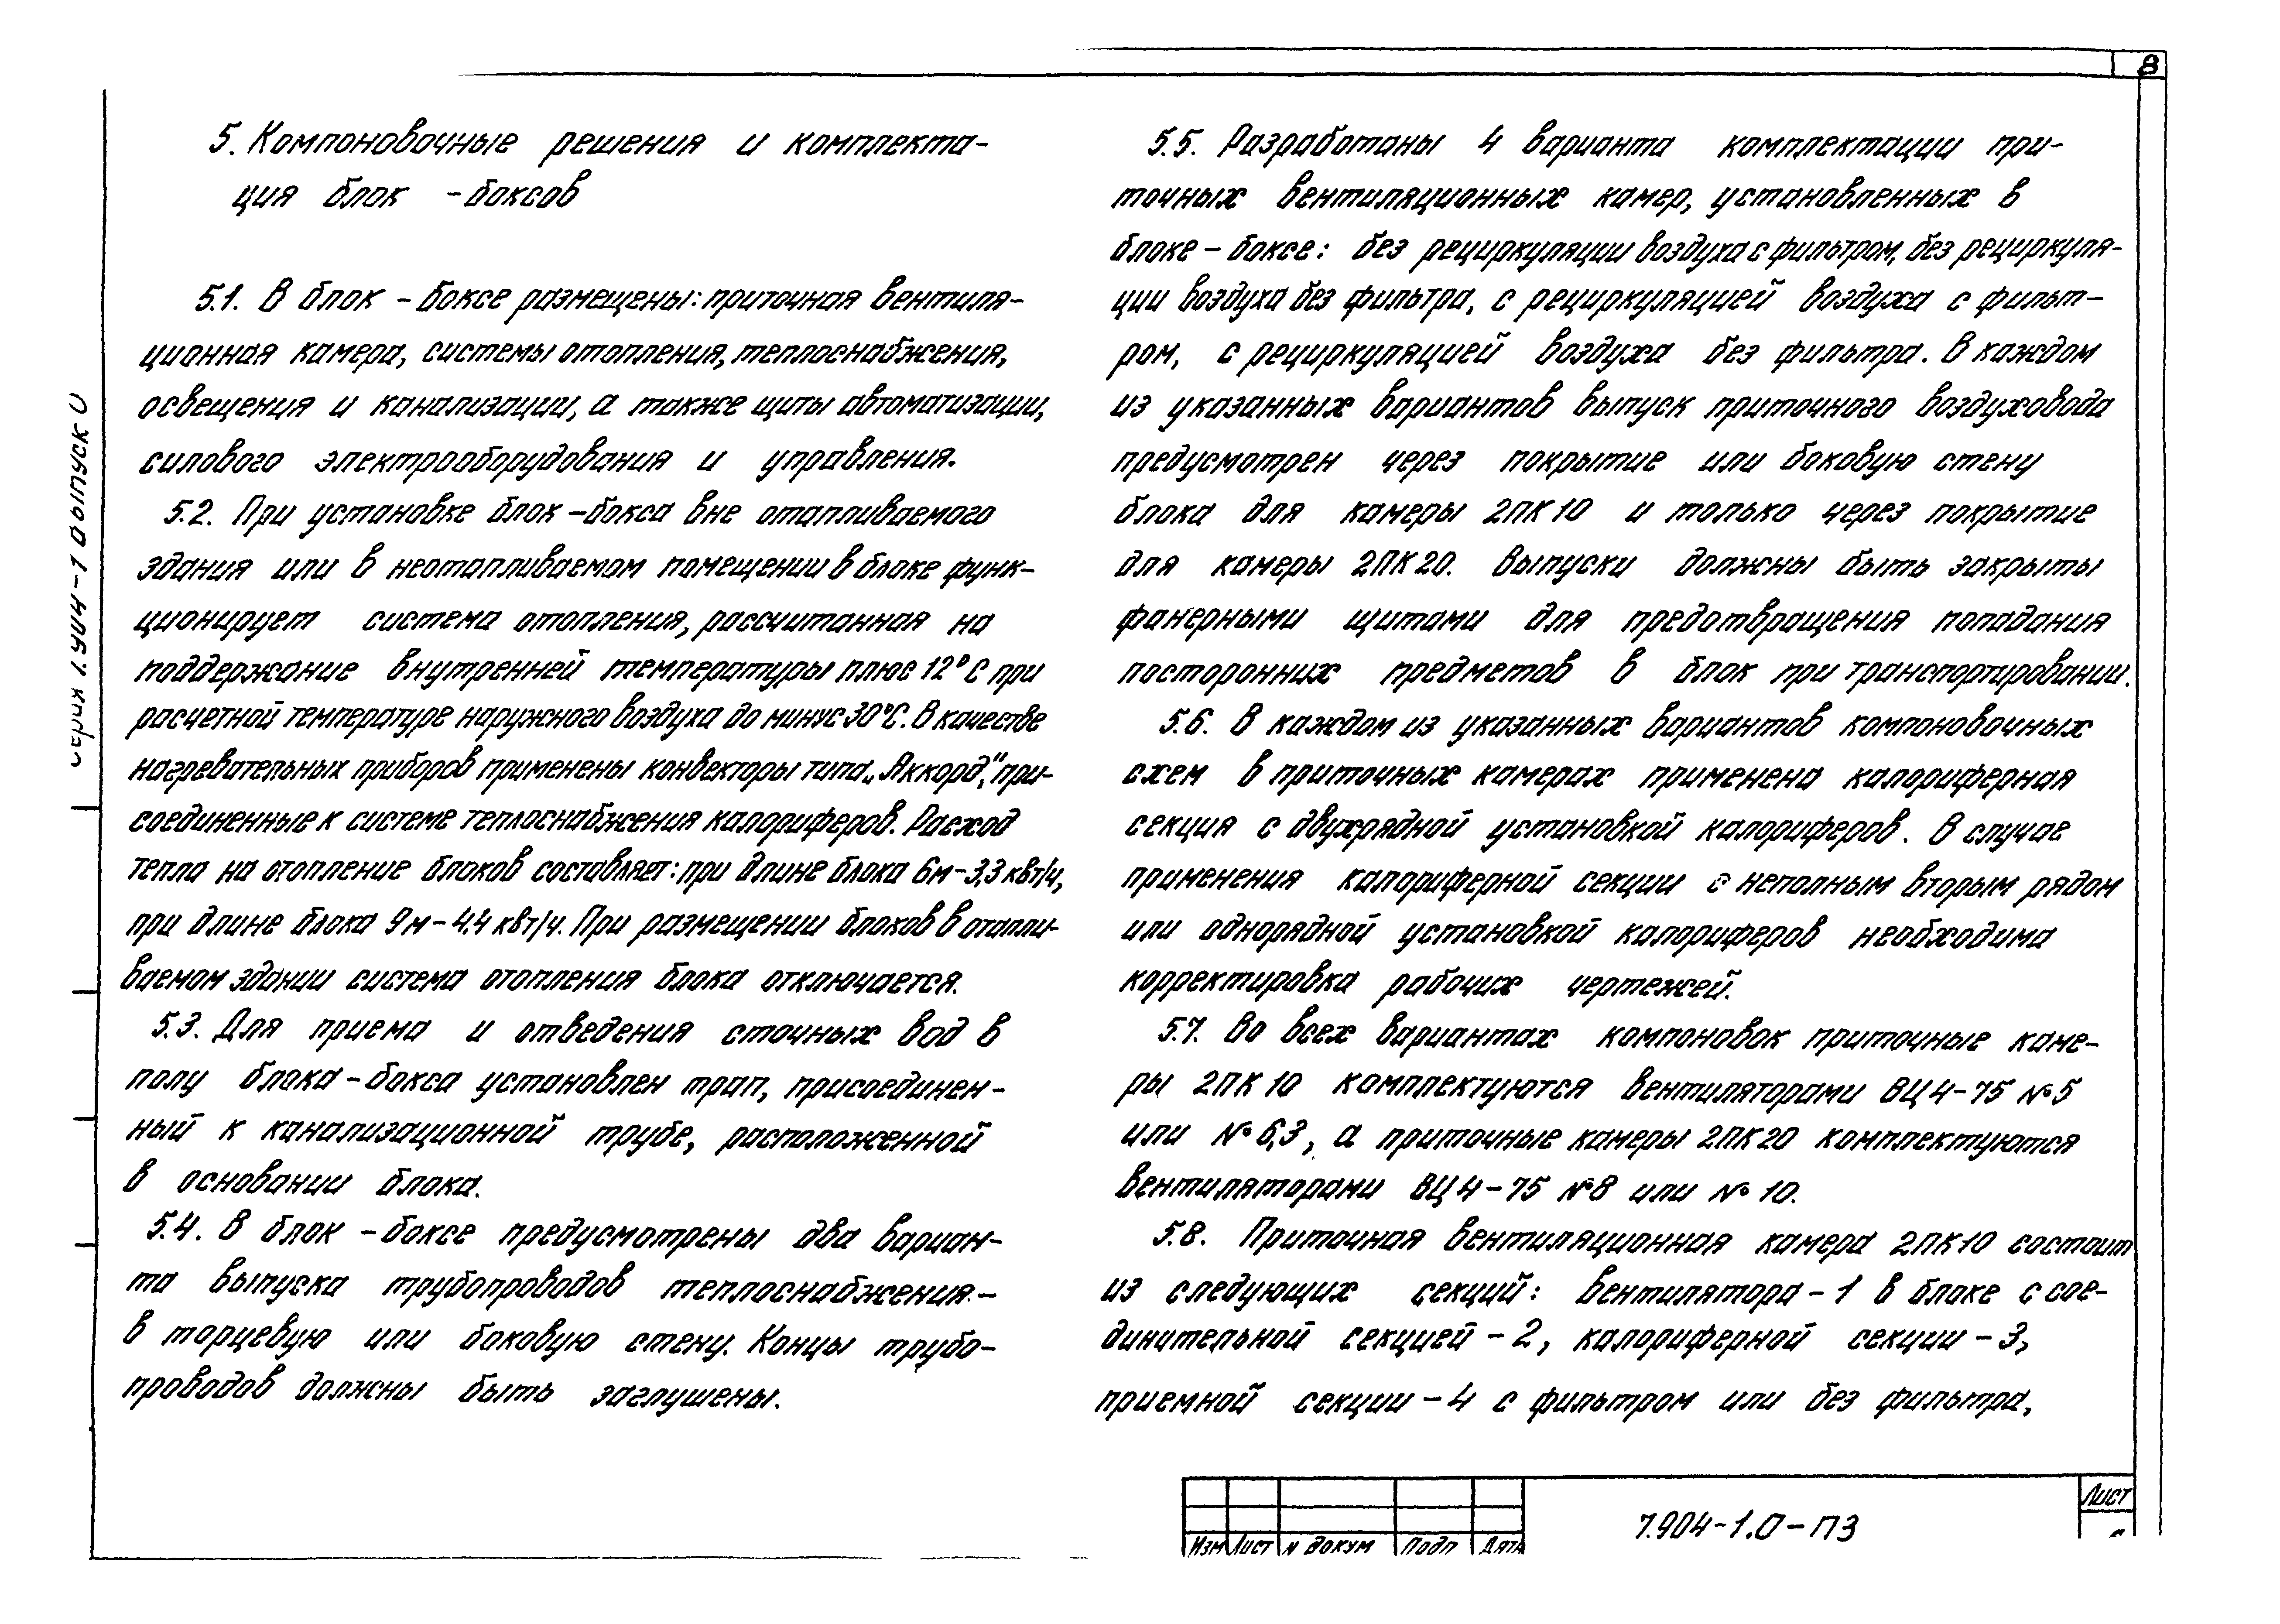 8
5. Компоновочные решения и комплекта-
ция блок -боксов
5.1. В блок -боксе размещены: приточная вентиля-
ционная камера, системы отопления, теплоснабжения,
освещения и канализации, а также щиты автоматизации,
силового электрооборудования и управления.
5.2. При установке блок -бокса вне отапливаемого
здания или в неотапливаемом помещении в блоке функ-
ционирует система отопления, рассчитанная на
поддержание внутренней температуры плюс 12°С при
расчетной температуре наружного воздуха до минус 30°С. В качестве
нагревательных приборов применены конвекторы типа „Аккорд," при-
соединенные к системе теплоснабжения калориферов. Расход
тепла на отопление блоков составляет: при длине блока 6м-3,3 квт/ч,
при длине блока 9м-4.4 квт/ч. При размещении блоков в отапли-
ваемом здании система отопления блока отключается.
5.3. Для приема и отведения сточных вод в
полу блока-бокса установлен трап, присоединен-
ный к канализационной трубе, расположенной
в основании блока.
5.4. В блок -боксе предусмотрены два вариан-
та выпуска трубопроводов теплоснабжения -
в торцевую или боковую стену. Концы трубо-
проводов должны быть заглушены.
5.5. Разработаны 4 варианта комплектации при-
точных вентиляционных камер, установленных в
блоке - боксе: без рециркуляции воздуха с фильтром, без рециркуля-
ции воздуха без фильтра, с рециркуляцией воздуха с фильт-
ром, с рециркуляцией воздуха без фильтра. В каждом
из указанных вариантов выпуск приточного воздуховода
предусмотрен через покрытие или боковую стену
блока для камеры 2ПК10 и только через покрытие
для камеры 2ПК20. Выпуски должны быть закрыты
фанерными щитами для предотвращения попадания
посторонних предметов в блок при транспортировании.
5.6. В каждом из указанных вариантов компоновочных
схем в приточных камерах применена калориферная
секция с двухрядной установкой калориферов. В случае
применения калориферной секции с неполным вторым рядом
или однорядной установкой калориферов необходима
корректировка рабочих чертежей.
5.7. Во всех вариантах компоновок приточные каме-
ры 2ПК10 комплектуются вентиляторами ВЦ4-75 №5
или №6,3, а приточные камеры 2ПК20 комплектуются
вентиляторами ВЦ4-75 №8 или №10.
5.8. Приточная вентиляционная камера 2ПК10 состоит
из следующих секций: вентилятора-1 в блоке с сое-
динительной секцией - 2, калориферной секции - 3,
приемной секции - 4 с фильтром или без фильтра,
Серия 1.904-1 выпуск 0
Изм Лист N докум Подп Дата
7.904-1.0-ПЗ
Лист